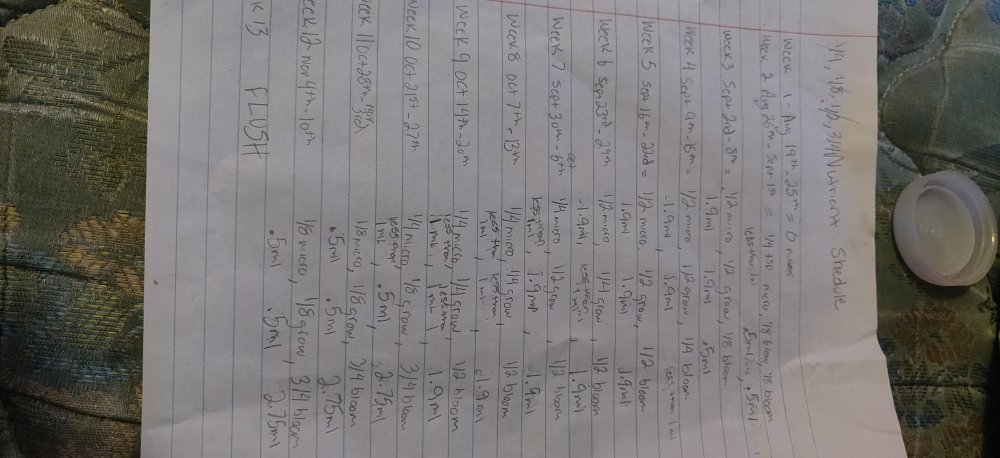 1/4, 1/8, 1/2, 3/4 Nutrient Shedule
Week 1 - Aug 19th - 25th = 0 nutes
Week 2 Aug 26th - Sept 1st = 1/4 tsp micro, 1/8 grow, 1/8 bloom
less than 1ml .5ml, .5ml
Week 3 Sept 2nd - 8th = 1/2 micro, 1/2 grow, 1/8 bloom
1.9ml 1.9ml .5ml
Week 4 Sept 9th - 15th = 1/2 micro, 1/2 grow, 1/4 bloom
1.9ml, 1.9ml less than 1ml
Week 5 Sept 16th - 22nd = 1/2 micro, 1/2 grow, 1/2 bloom
1.9ml 1.9ml 1.9ml
Week 6 Sept 23rd - 29th 1/2 micro, 1/4 grow, 1/2 bloom
1.9ml, less than 1ml, 1.9ml
Week 7 Sept 30th - Oct 6th 1/4 micro, 1/2 grow, 1/2 bloom
less than 1ml, 1.9ml, 1.9ml
Week 8 Oct 7th - 13th 1/4 micro, 1/4 grow, 1/2 bloom
less than 1ml, less than 1ml, 1.9ml
Week 9 Oct 14th - 20th 1/4 micro, 1/4 grow, 1/2 bloom
less than 1ml, less than 1ml, 1.9ml
Week 10 Oct 21st - 27th 1/4 micro, 1/8 grow, 3/4 bloom
less than 1ml, .5ml, 2.75ml
Week 11 Oct 28th - Nov 3rd 1/8 micro, 1/8 grow, 3/4 bloom
.5ml .5ml 2.75ml
Week 12 Nov 4th - 10th 1/8 micro, 1/8 grow, 3/4 bloom
.5ml .5ml 2.75ml
k 13 FLUSH